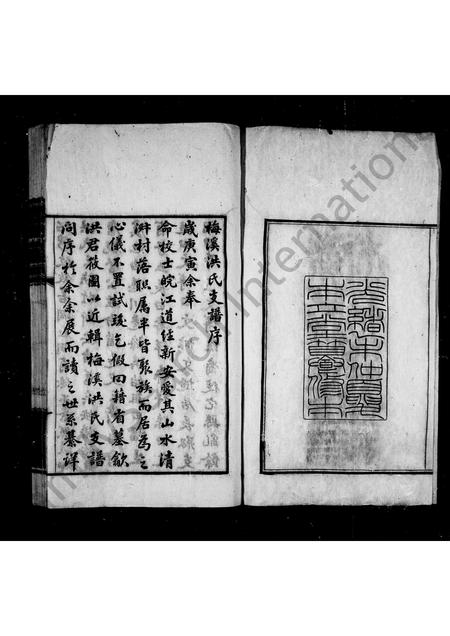 梅溪洪氏支譜序
歲庚寅余奉
命校士皖江道經新安愛其山水清
村落聯屬半皆聚族而居為之
心儀不置試竣乞假回籍省墓歙
洪君筱圃以近輯梅溪洪氏支譜
問序於余余展而讀之世系綦詳
International